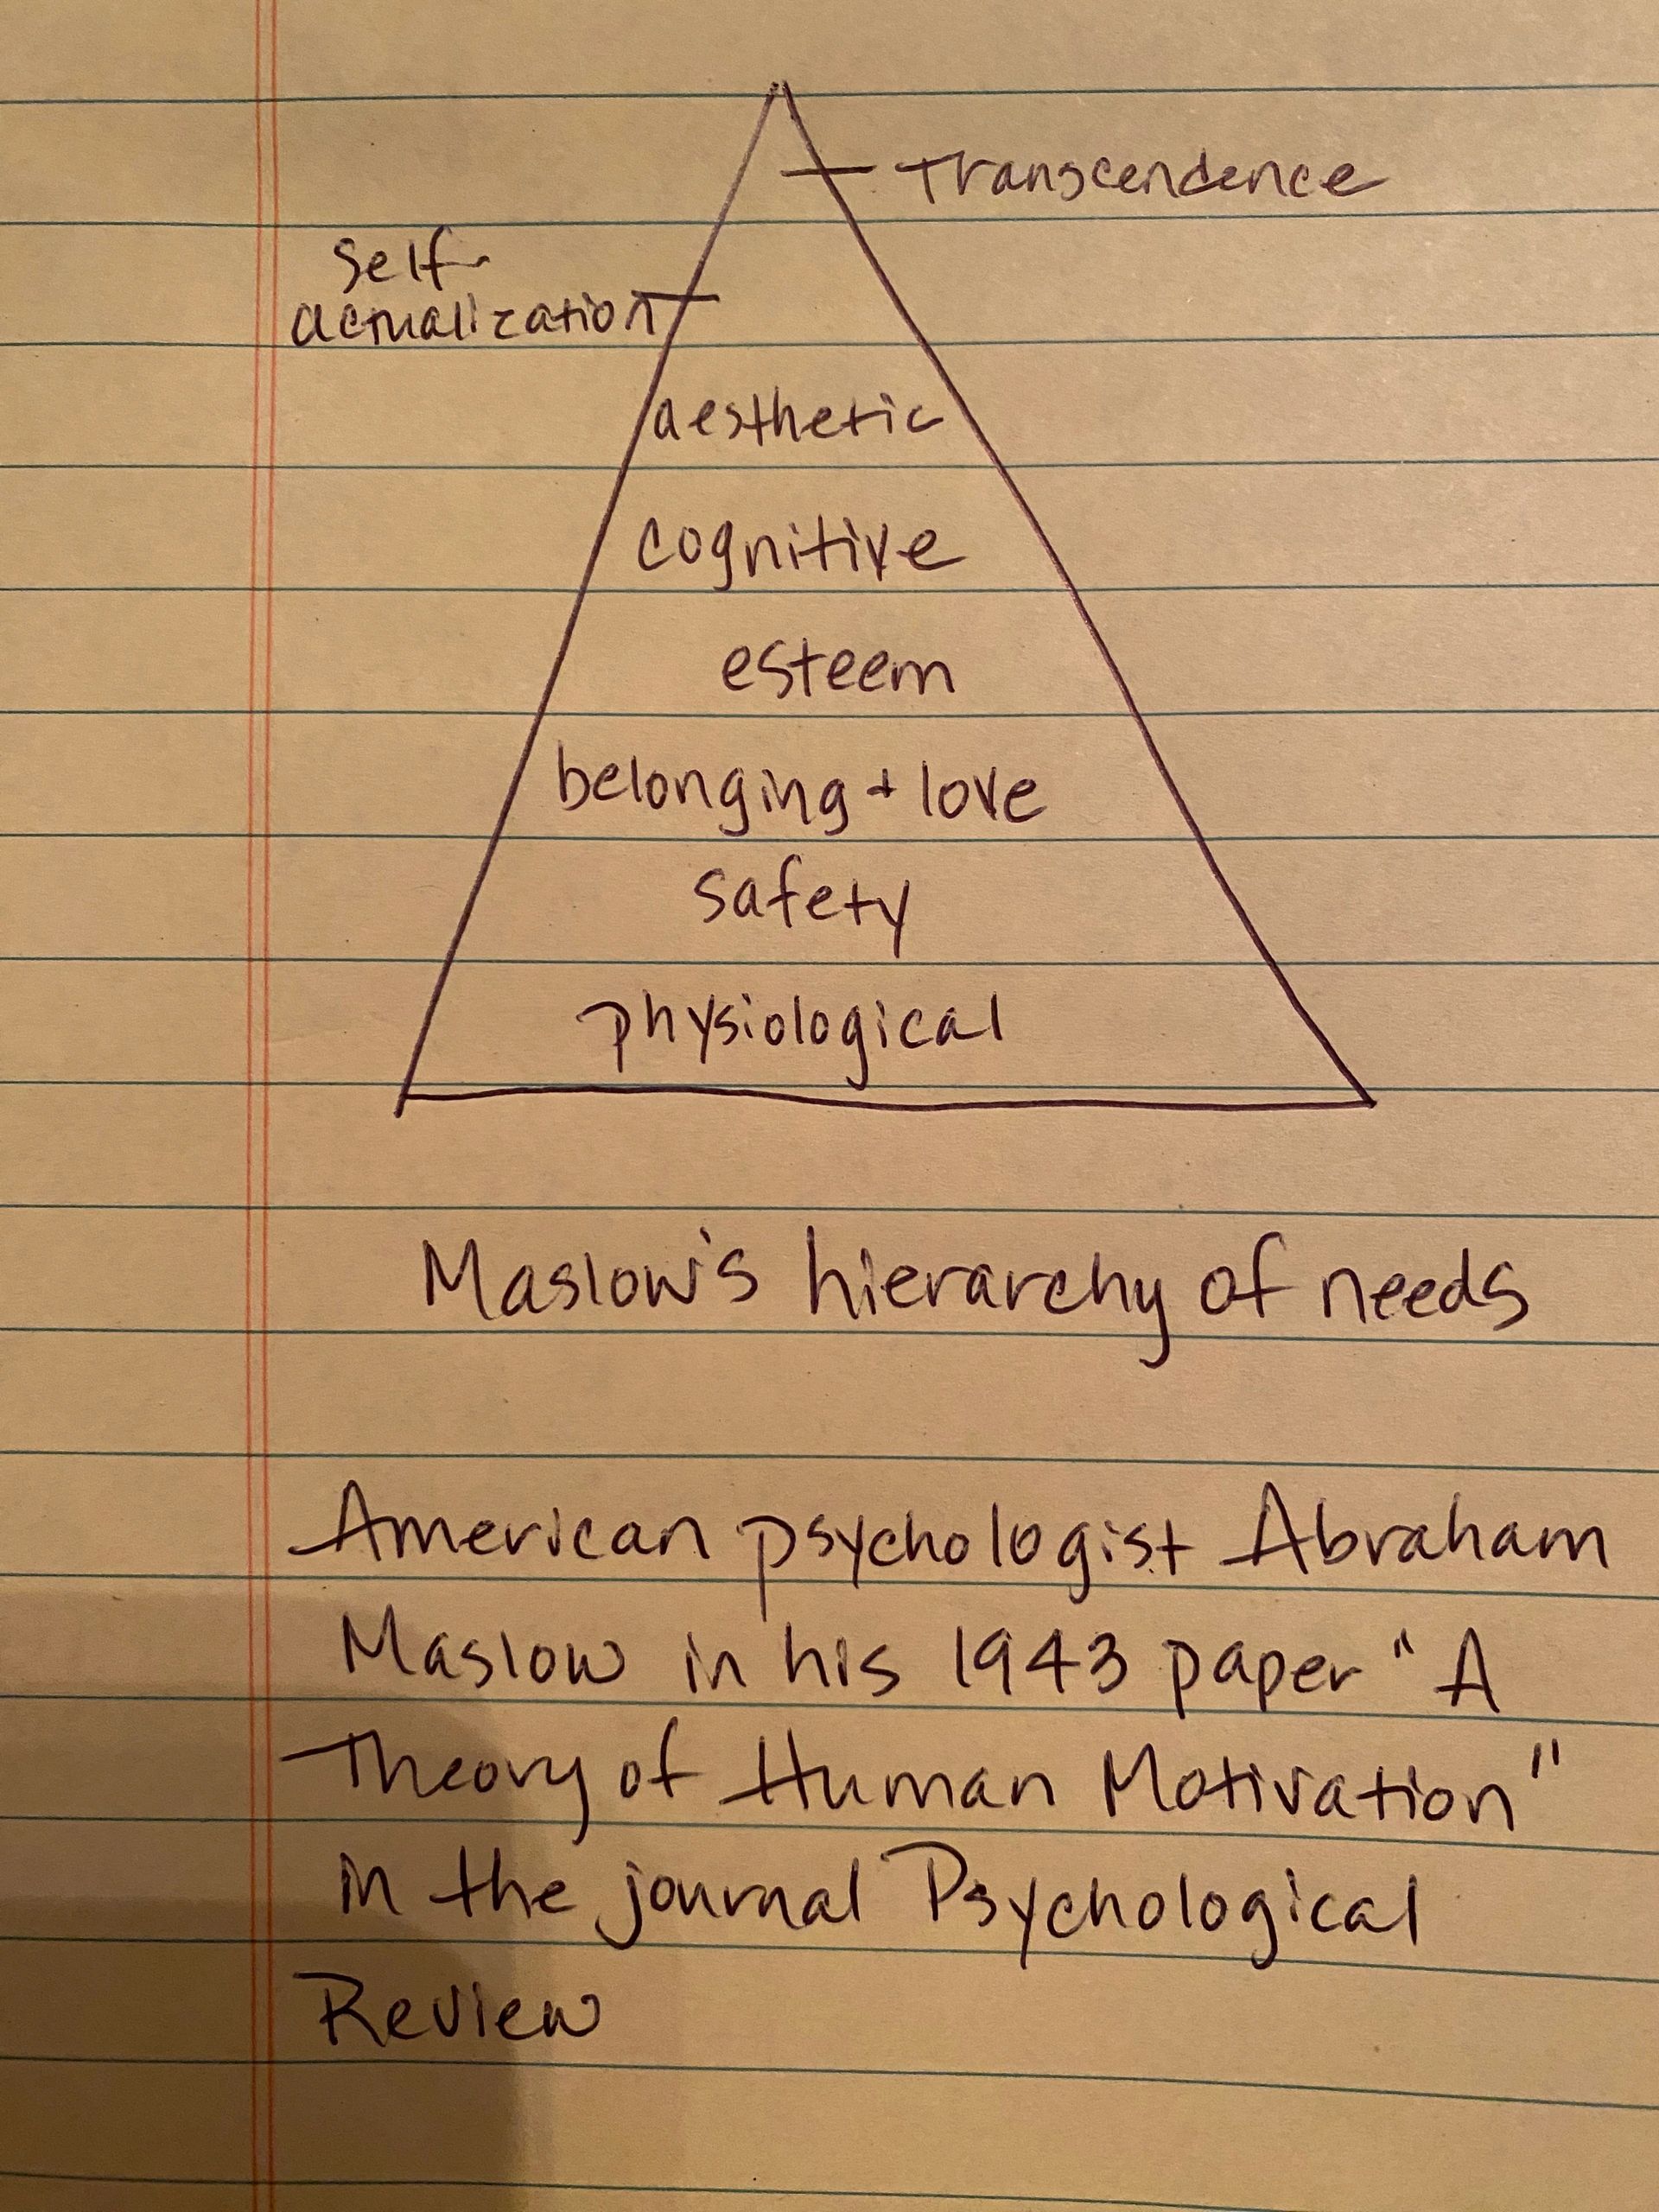 Transcendence
Self-
actualization
aesthetic
cognitive
esteem
belonging + love
safety
physiological
Maslow's hierarchy of needs
American psychologist Abraham
Maslow in his 1943 paper "A
Theory of Human Motivation"
in the journal Psychological
Review